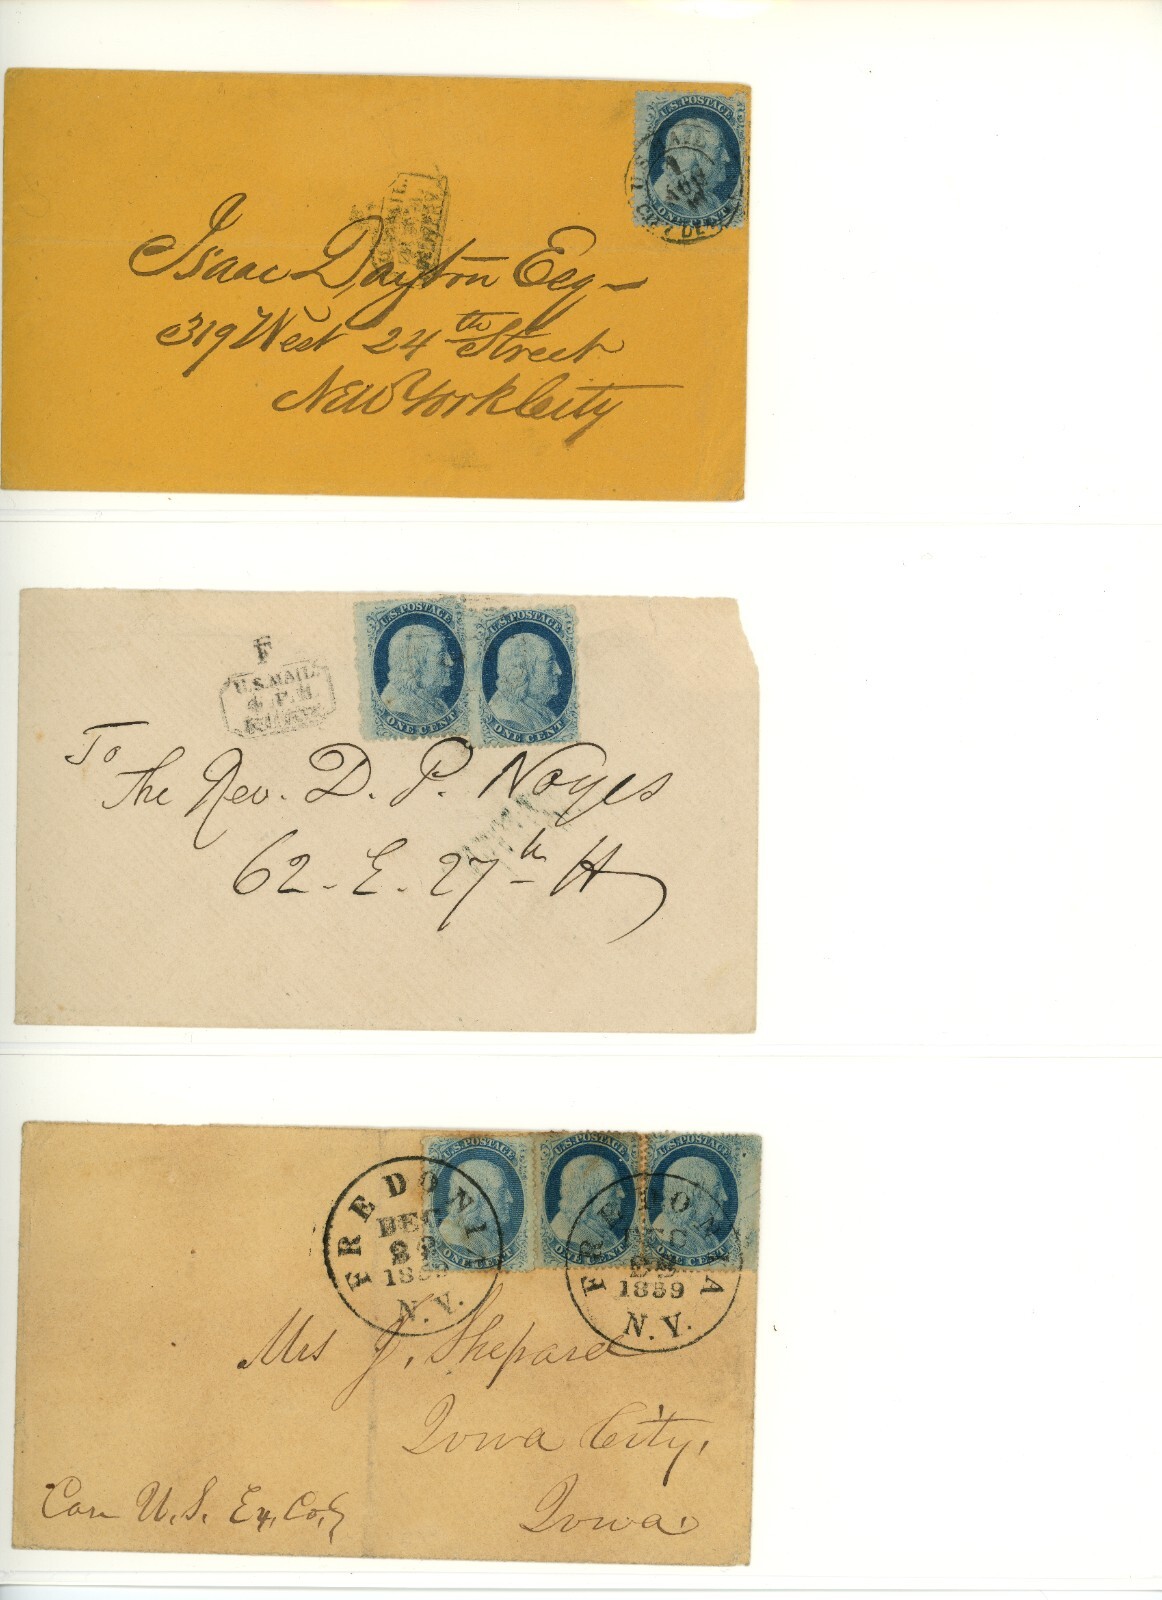 U.S. POSTAGE
ONE CENT
U.S. MAIL
CITY DEL
U.S. MAIL
DELIVERY
Isaac Dayton Esq
319 West 24th Street
New York City
U.S. POSTAGE U.S. POSTAGE
ONE CENT ONE CENT
F
U.S. MAIL
4 P.M
To
The Rev. D. P. Noyes
62 - E. 27th St
U.S. POSTAGE U.S. POSTAGE U.S. POSTAGE
ONE CENT ONE CENT ONE CENT
FREDONIA
DEC
1859
N.Y.
FREDONIA
DEC
1859
N.Y.
Mrs J. Shepard
Iowa City,
Iowa
Care U.S. Ex. Co.